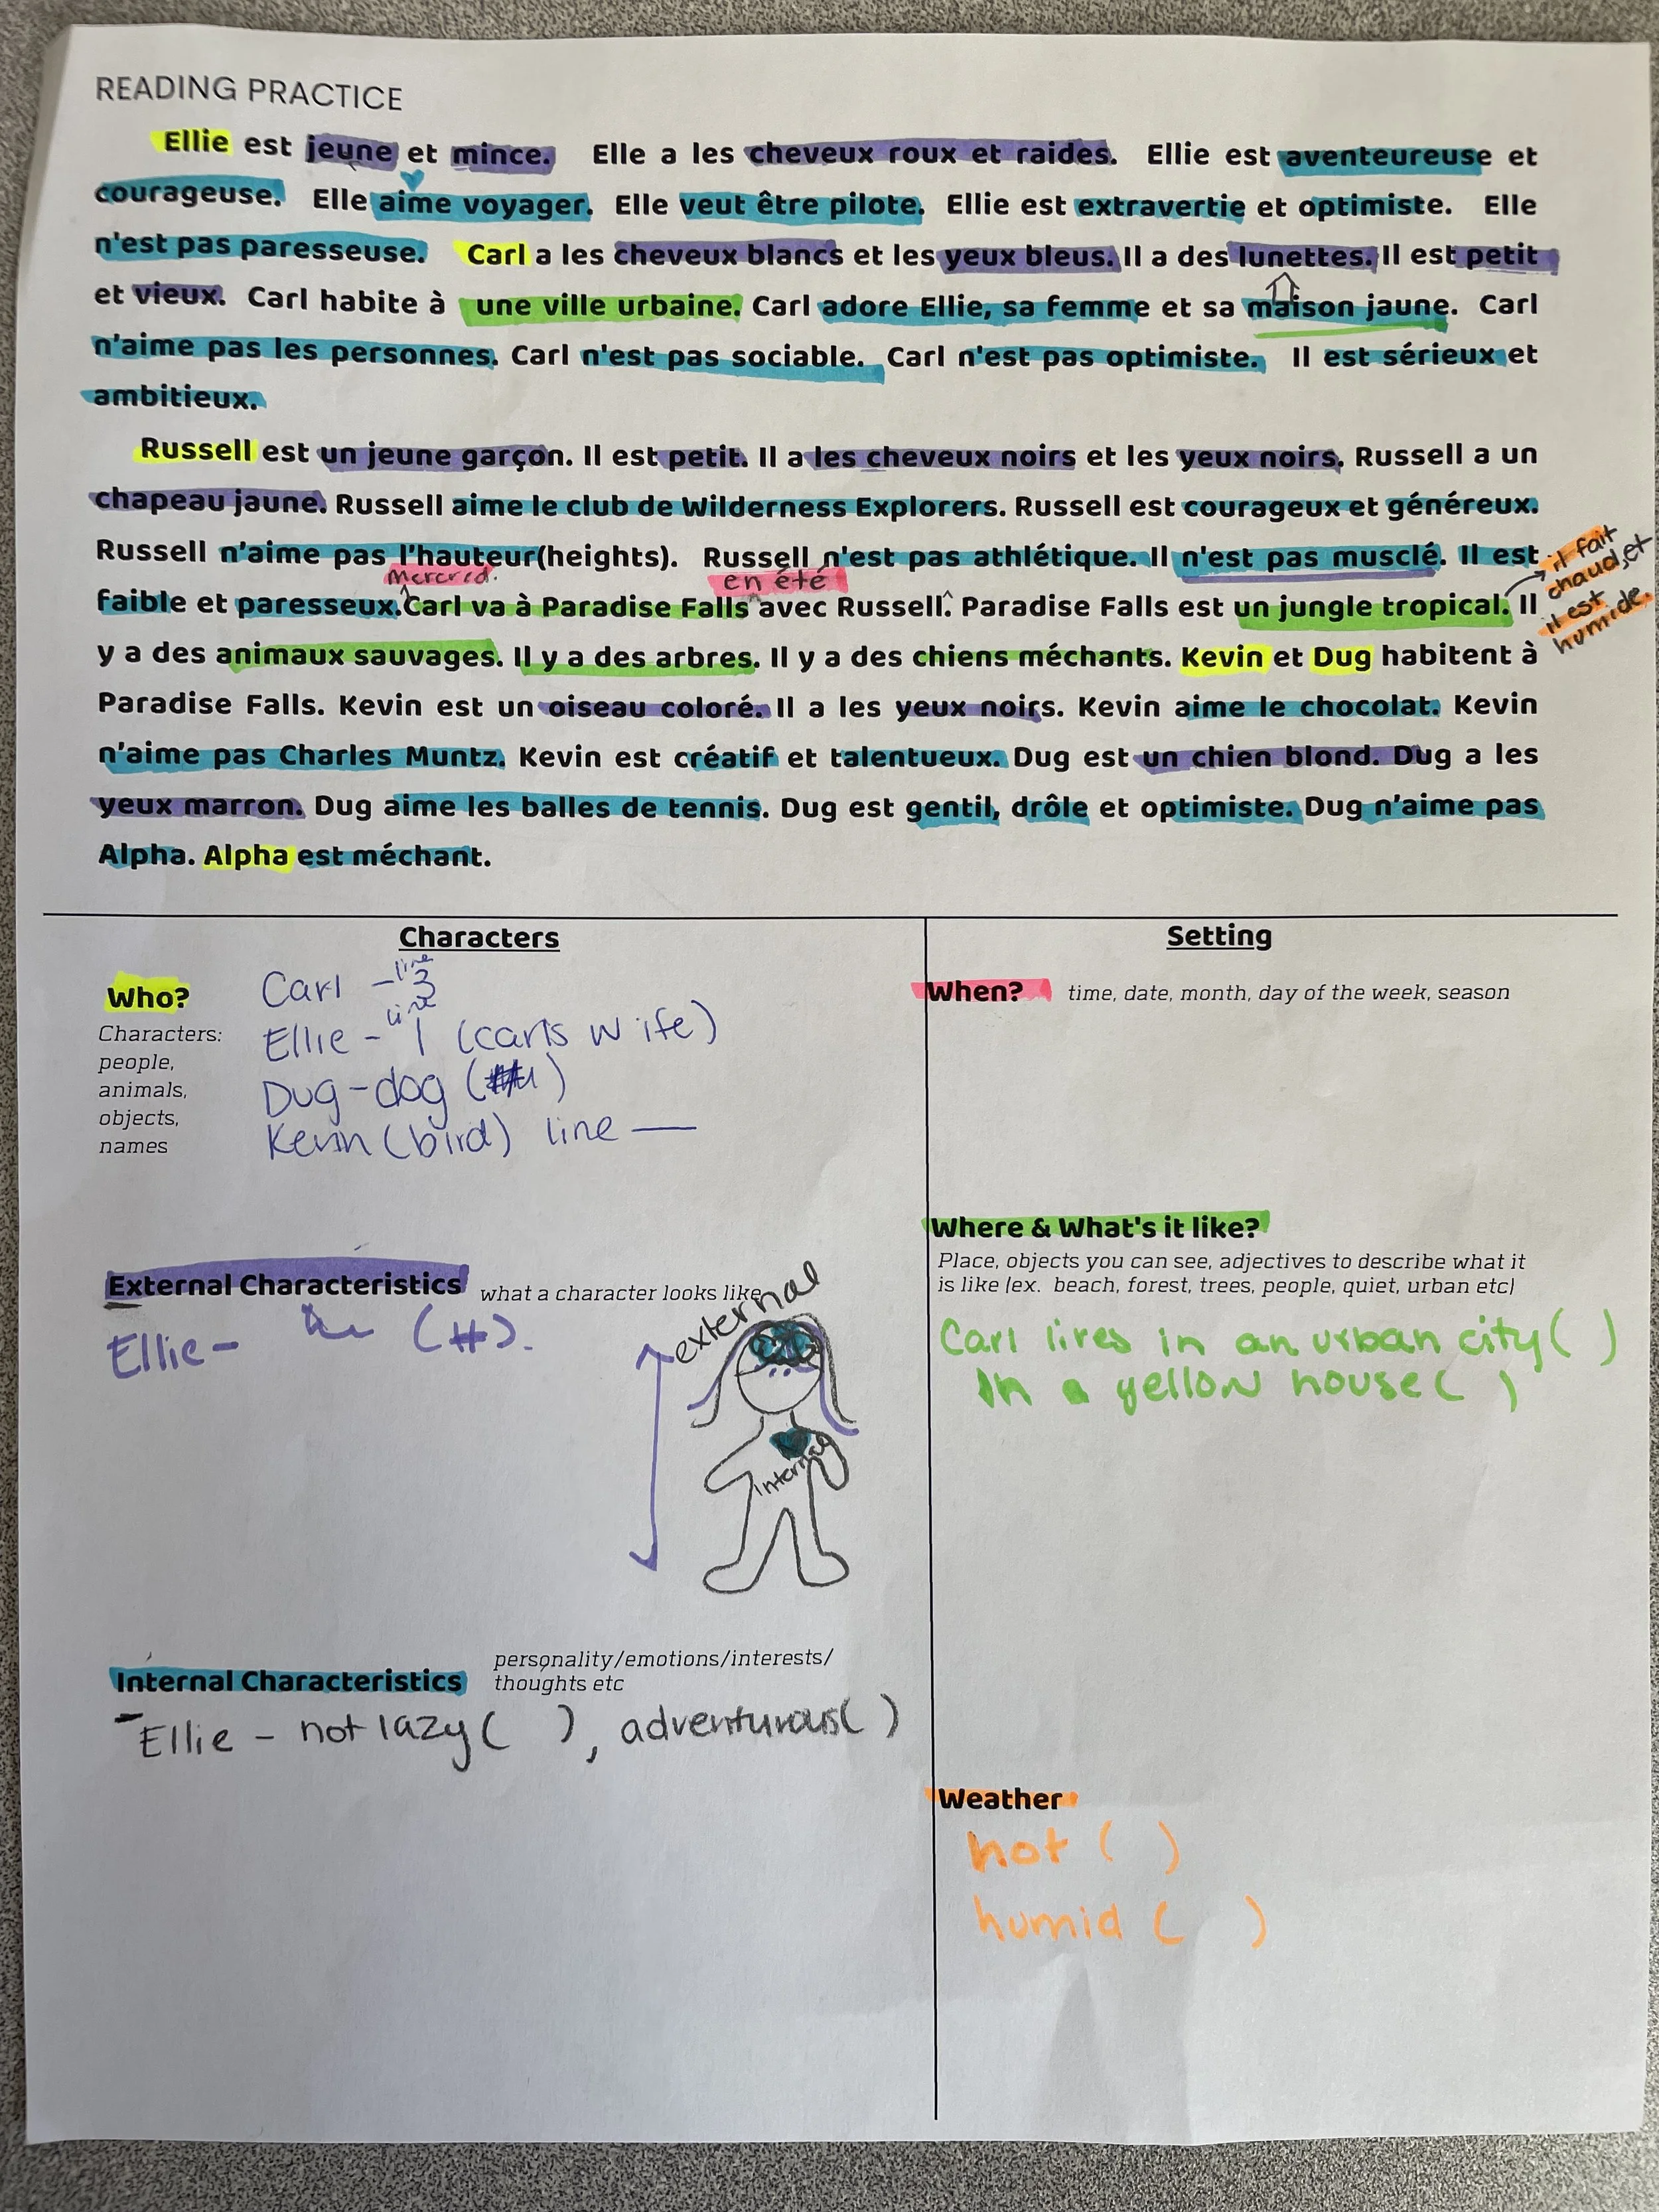 READING PRACTICE
Ellie est jeune et mince. Elle a les cheveux roux et raides. Ellie est aventeureuse et
courageuse. Elle aime voyager. Elle veut être pilote. Ellie est extravertie et optimiste. Elle
n'est pas paresseuse. Carl a les cheveux blancs et les yeux bleus. Il a des lunettes. Il est petit
et vieux. Carl habite à une ville urbaine. Carl adore Ellie, sa femme et sa maison jaune. Carl
n'aime pas les personnes. Carl n'est pas sociable. Carl n'est pas optimiste. Il est sérieux et
ambitieux.
Russell est un jeune garçon. Il est petit. Il a les cheveux noirs et les yeux noirs. Russell a un
chapeau jaune. Russell aime le club de Wilderness Explorers. Russell est courageux et généreux.
Russell n'aime pas l'hauteur(heights). Russell n'est pas athlétique. Il n'est pas musclé. Il est
il fait
chaud, et
il est
humide.
mercredi.
en été
faible et paresseux. Carl va à Paradise Falls avec Russell. Paradise Falls est un jungle tropical. Il
y a des animaux sauvages. Il y a des arbres. Il y a des chiens méchants. Kevin et Dug habitent à
Paradise Falls. Kevin est un oiseau coloré. Il a les yeux noirs. Kevin aime le chocolat. Kevin
n'aime pas Charles Muntz. Kevin est créatif et talentueux. Dug est un chien blond. Dug a les
yeux marron. Dug aime les balles de tennis. Dug est gentil, drôle et optimiste. Dug n'aime pas
Alpha. Alpha est méchant.
Characters
Who?
Characters:
people,
animals,
objects,
names
Carl - line 3
Ellie - line 1 (carls wife)
Dug - dog ( )
Kevin (bird) line —
External Characteristics what a character looks like
Ellie - (#).
external
internal
Internal Characteristics personality/emotions/interests/
thoughts etc
- Ellie - not lazy ( ), adventurous( )
Setting
When? time, date, month, day of the week, season
Where & What's it like?
Place, objects you can see, adjectives to describe what it
is like (ex. beach, forest, trees, people, quiet, urban etc)
Carl lives in an urban city( )
In a yellow house( )
Weather
hot ( )
humid ( )